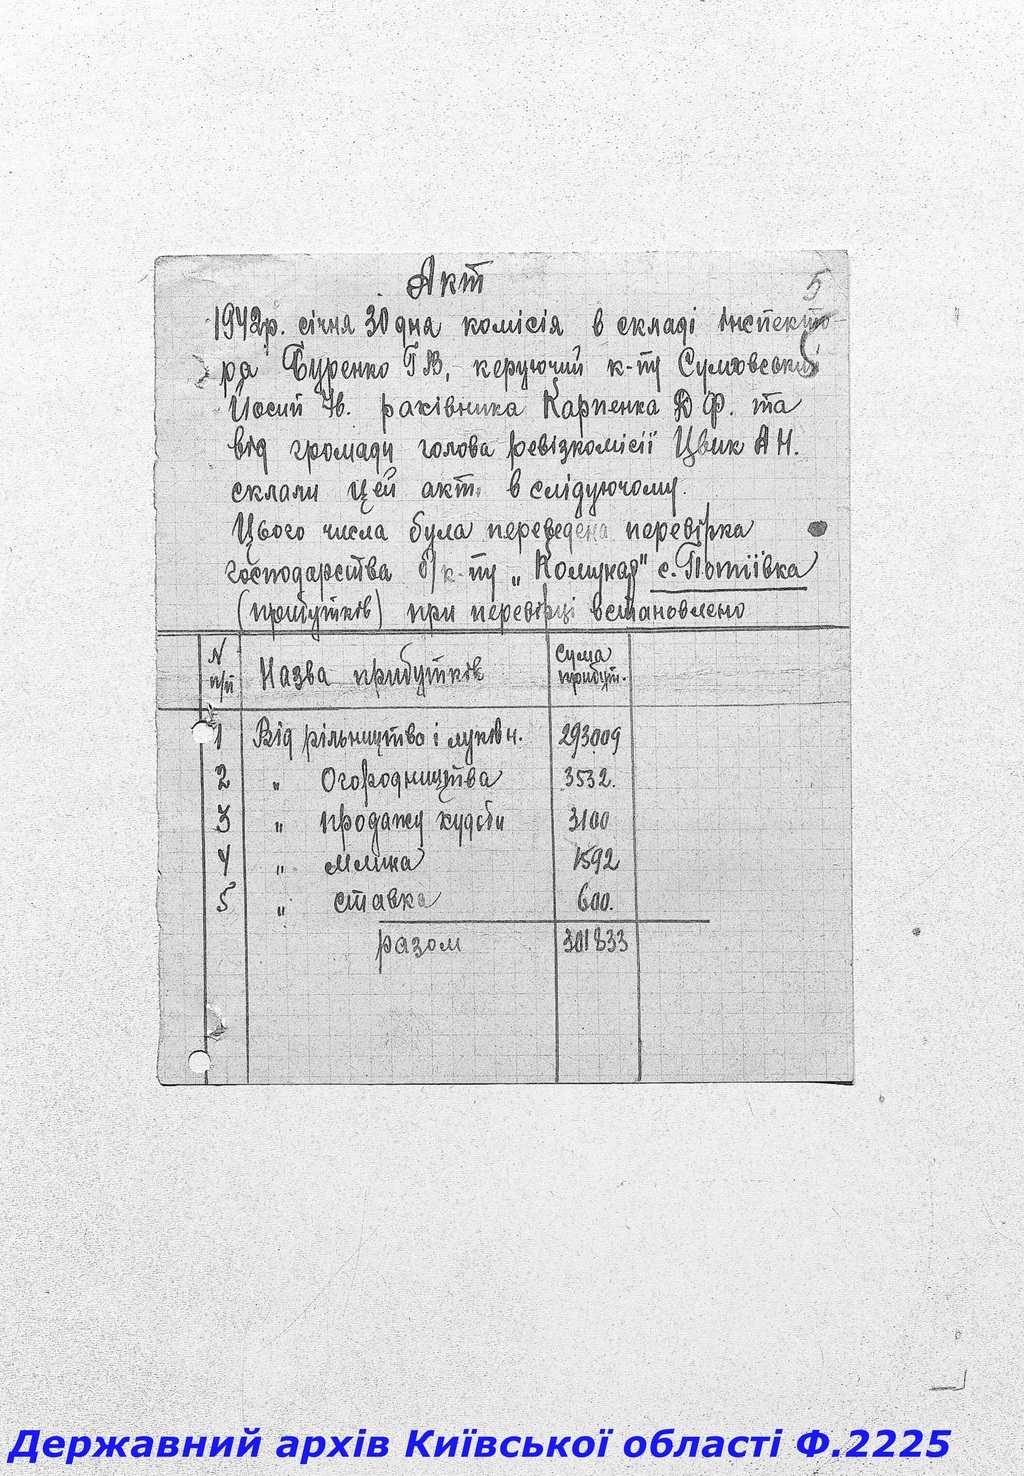 Акт
5
1942р. січня 30 дня комісія в складі Інспекто-
ра Буренко Г В, керуючий к-пу
Йосип Ів. рахівника Карпенка Д Ф. та
від громади голова ревізкомісії Цвик А Н.
склали цей акт в слідуючому.
Цього числа була переведена перевірка
господарства б/к-пу „Комунар" с. Потіївка
(прибутків) при перевірці встановлено
N п/п Назва прибутків Сума прибут.
1 Від рільництво і луків н. 293.009
2 „ Огородництва 3532.
3 „ продажу худоби 3100
4 „ млина 1592
5 „ ставка 600.
разом 301833
Державний архів Київської області Ф.2225